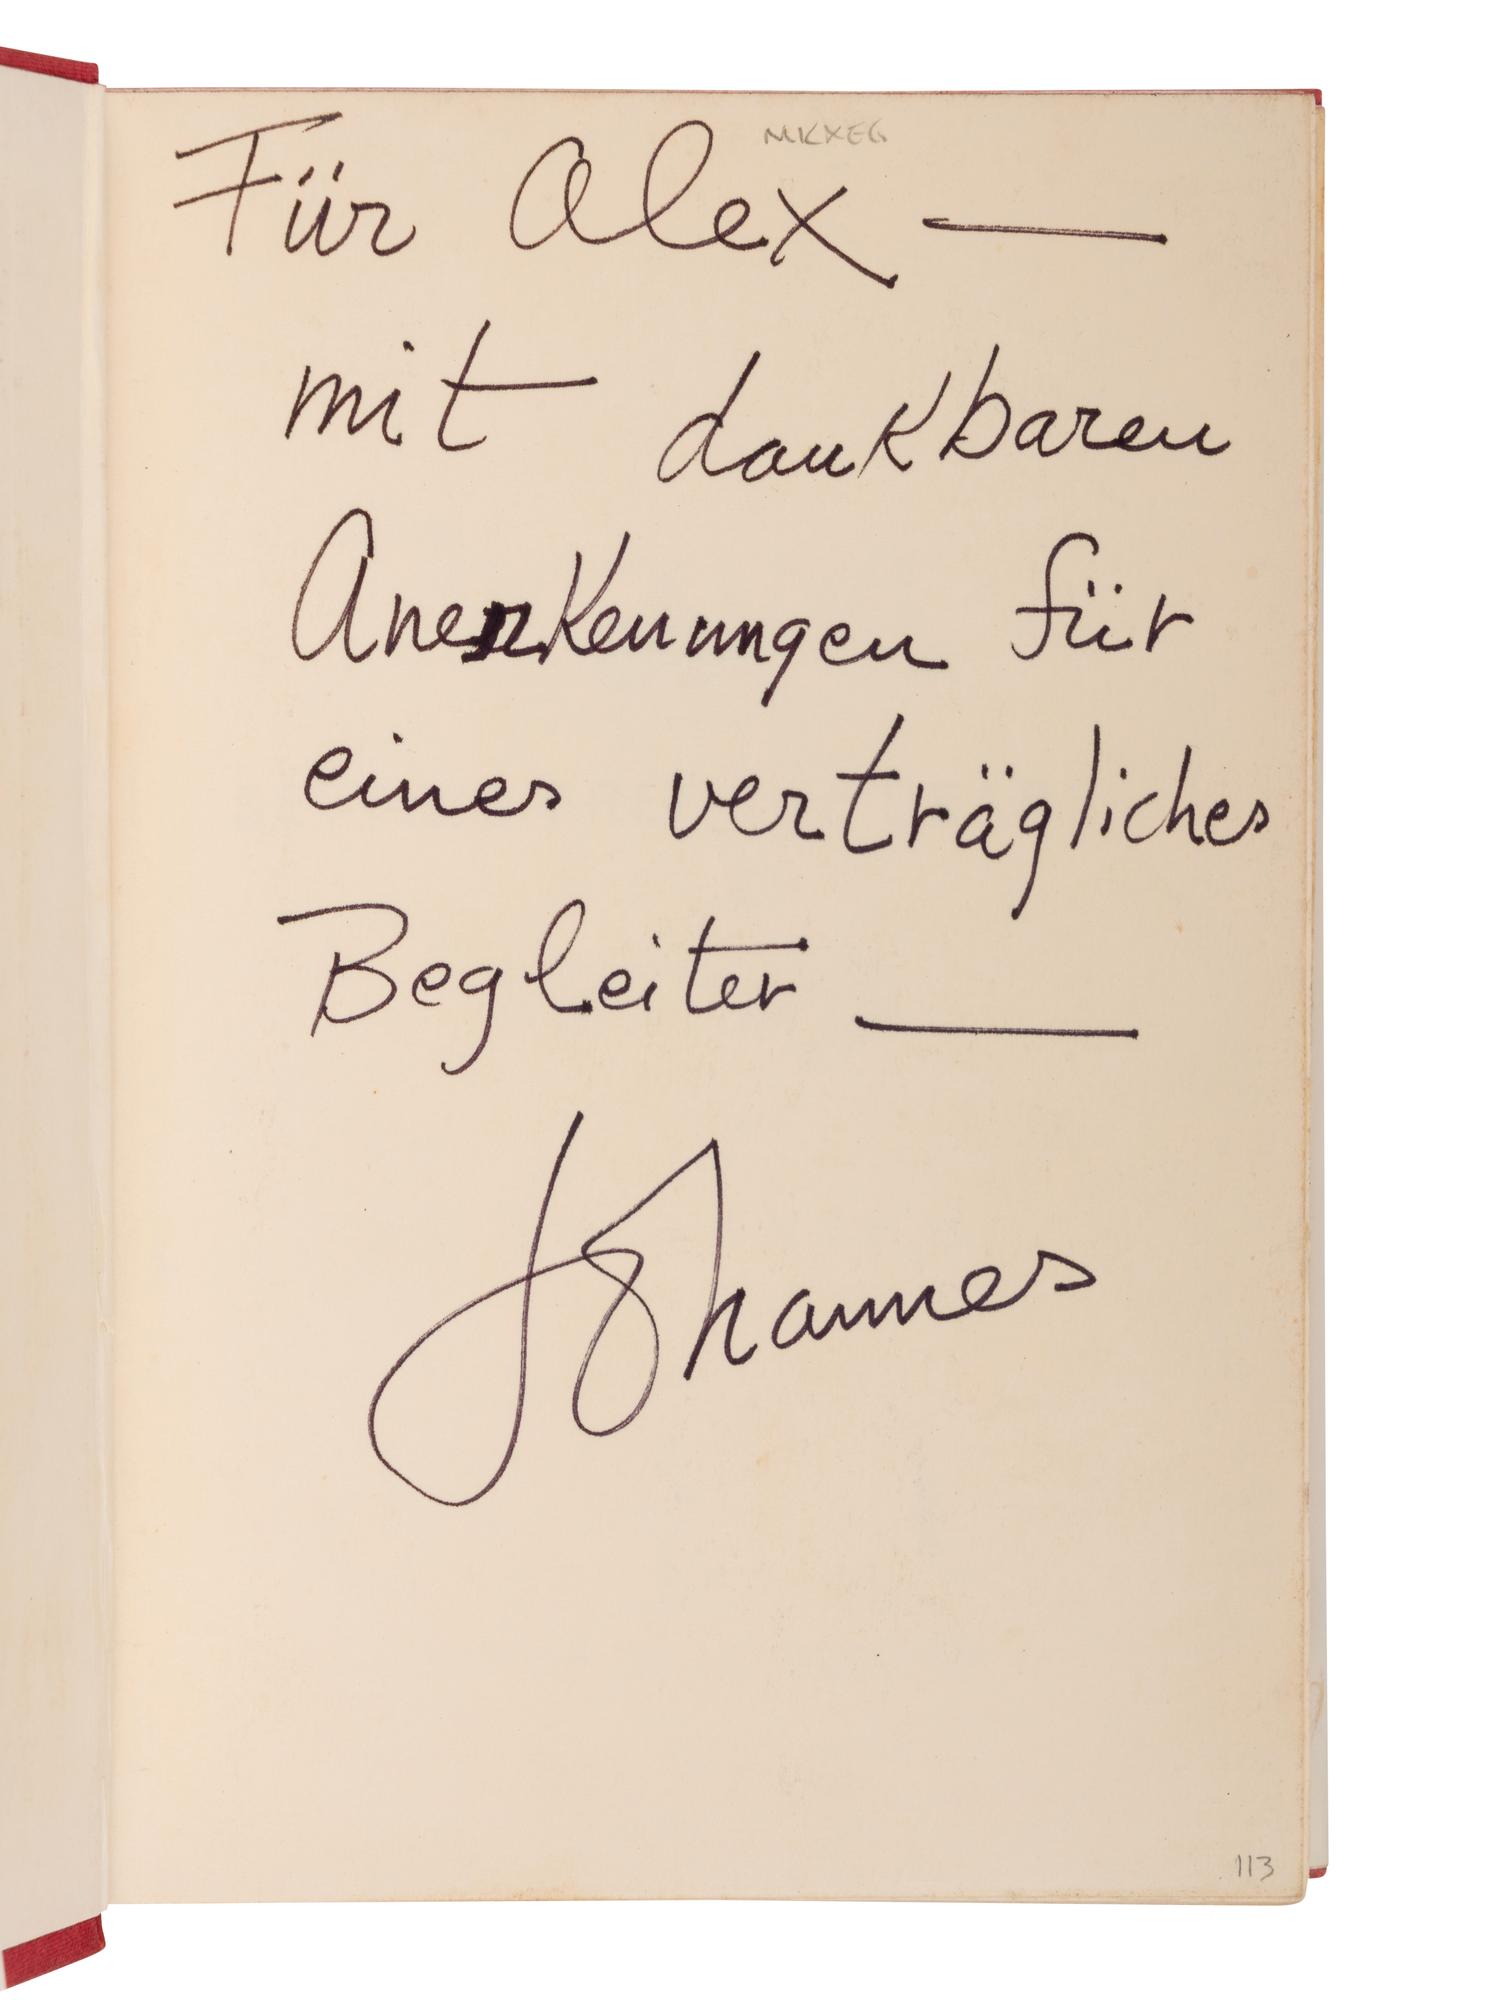 MKXEG
Für Alex —
mit dankbaren
Anerkenungen für
eines verträgliches
Begleiter —
Johannes
113